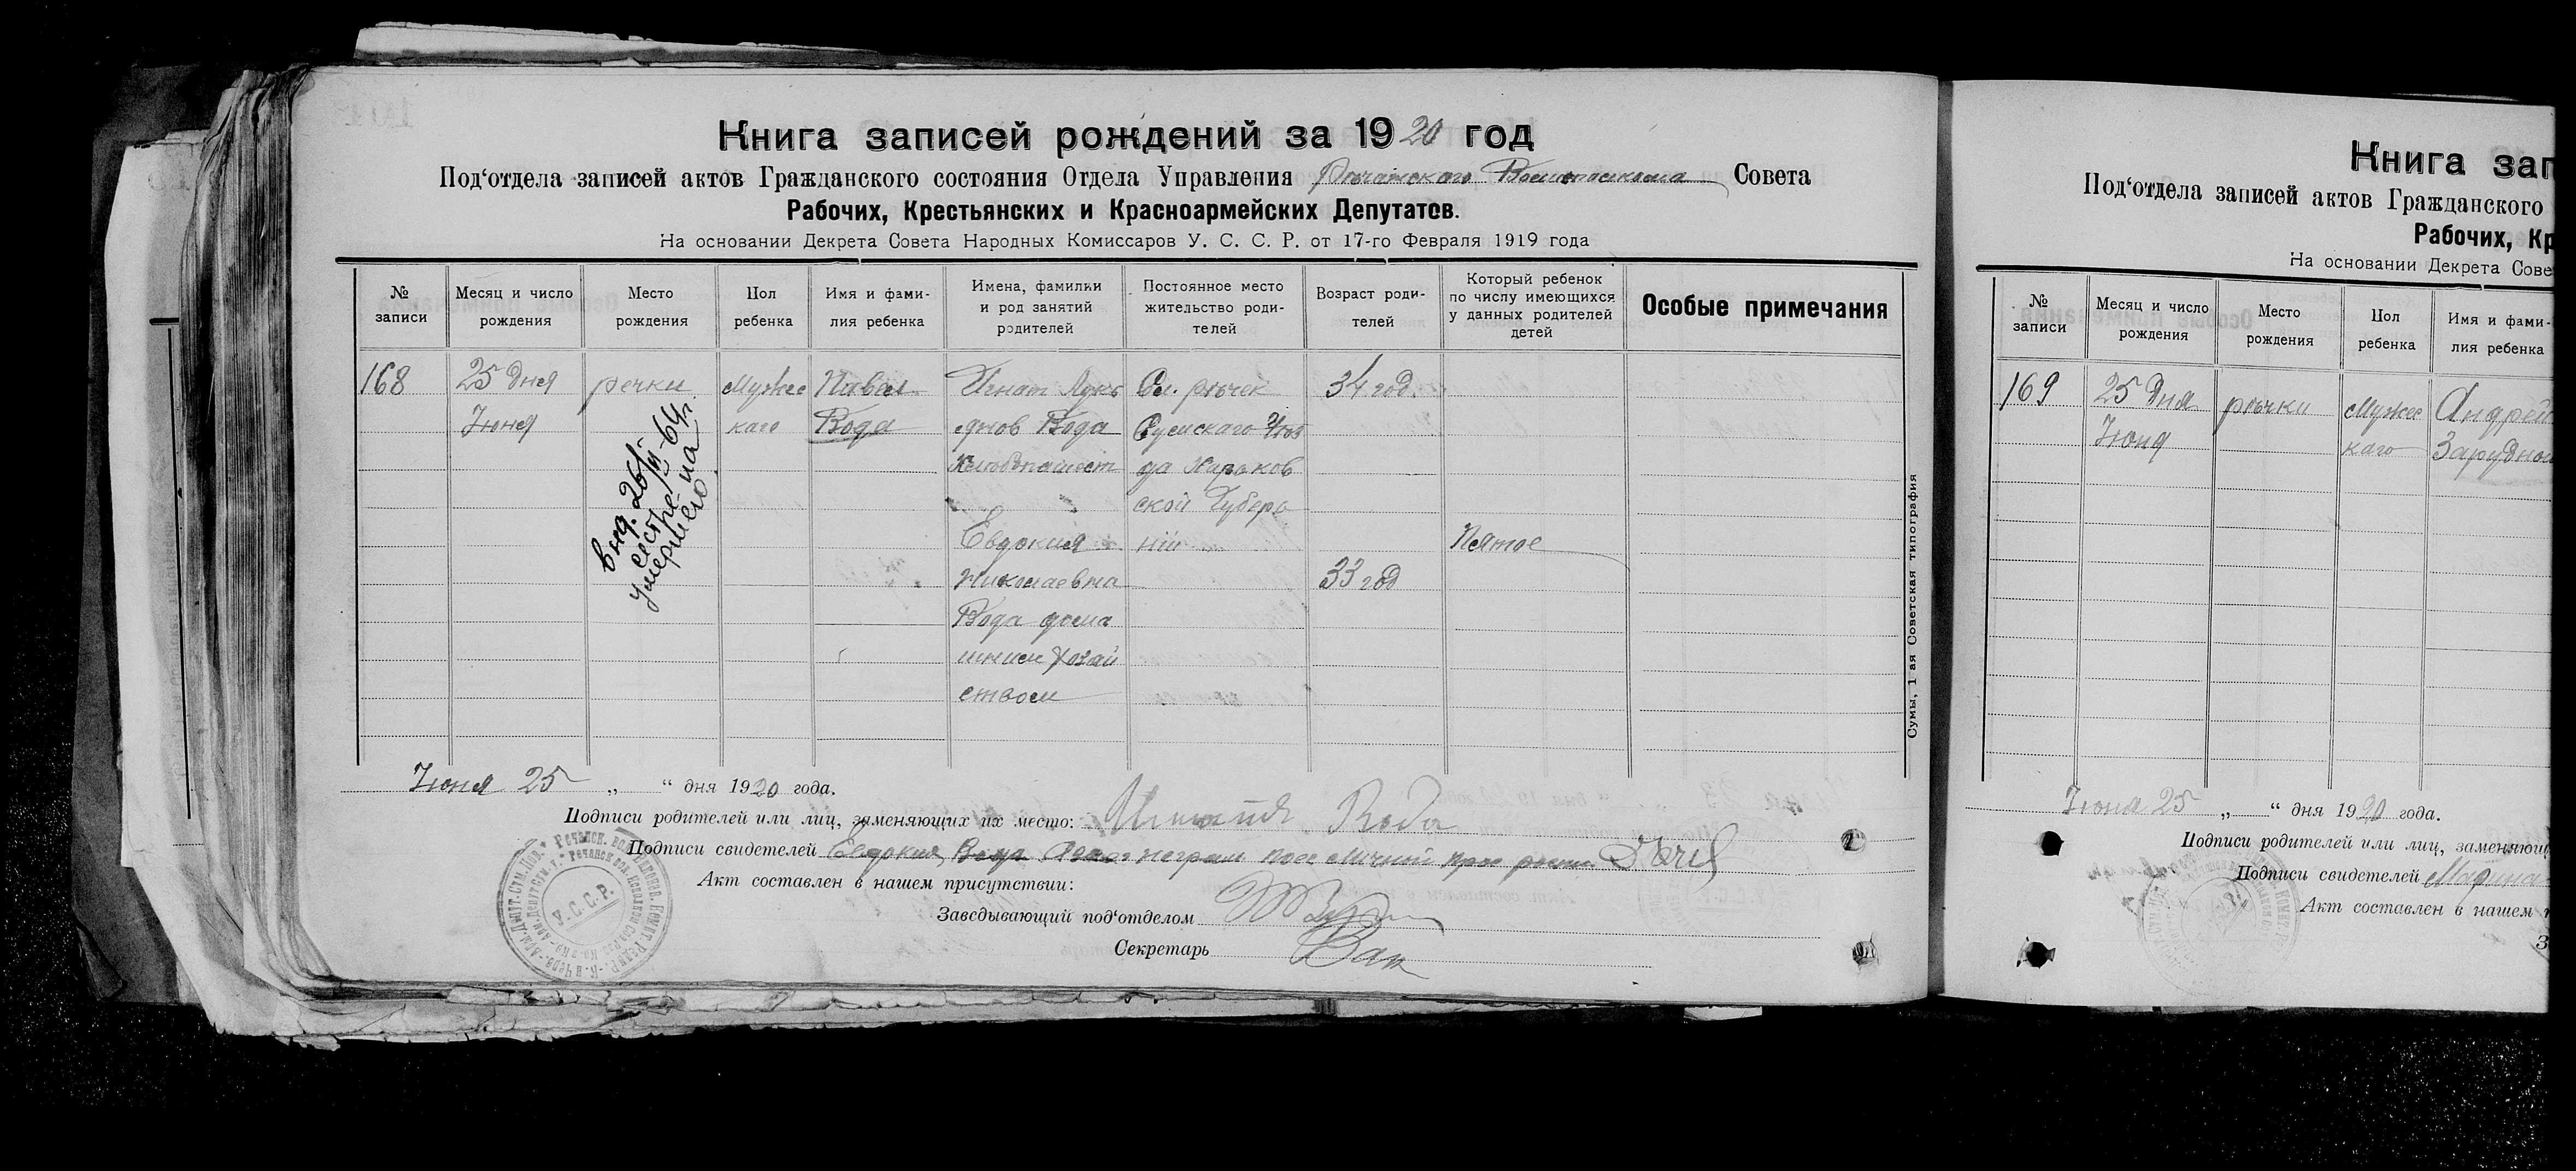 Книга записей рождений за 1920 год
Под‘отдела записей актов Гражданского состояния Отдела Управления Речанского Волисполкома Совета
Рабочих, Крестьянских и Красноармейских Депутатов.
На основании Декрета Совета Народных Комиссаров У. С. С. Р. от 17-го Февраля 1919 года
№ записи
Месяц и число рождения
Место рождения
Пол ребенка
Имя и фами-
лия ребенка
Имена, фамилии
и род занятий
родителей
Постоянное место
жительство роди-
телей
Возраст роди-
телей
Который ребенок
по числу имеющихся
у данных родителей
детей
Особые примечания
168
25 дня
Июня
речки
Мужес
каго
Павел
Вода
Игнат Лукъ
янов Вода
Хлебопашест
Евдокия
Николаевна
Вода дома
шним хозяй
ством
Сл. рѣчек
Сумскаго Уѣз
да Харьков
ской Губер
ніи
34 год.
33 год
Пятое
выд. 26/VI-64г.
сестре на
умершего
Июня 25 „ “ дня 1920 года.
Подписи родителей или лиц, заменяющих их место: Вода
Подписи свидетелей Евдокия Вода неграм
Акт составлен в нашем присутствии:
Заведывающий под‘отделом
Секретарь
У.С.С.Р.
Сумы, 1 ая Советская типография
Книга зап
Под‘отдела записей актов Гражданского
Рабочих, Кр
На основании Декрета Сове
№ записи
Месяц и число рождения
Место рождения
Пол ребенка
Имя и фами-
лия ребенка
169
25 дня
Июня
рѣчки
Мужес
каго
Андрей
Зарудно
Июня 25 „ “ дня 1920 года.
Подписи родителей или лиц, заменяющ
Подписи свидетелей Марина
Акт составлен в нашем п
З